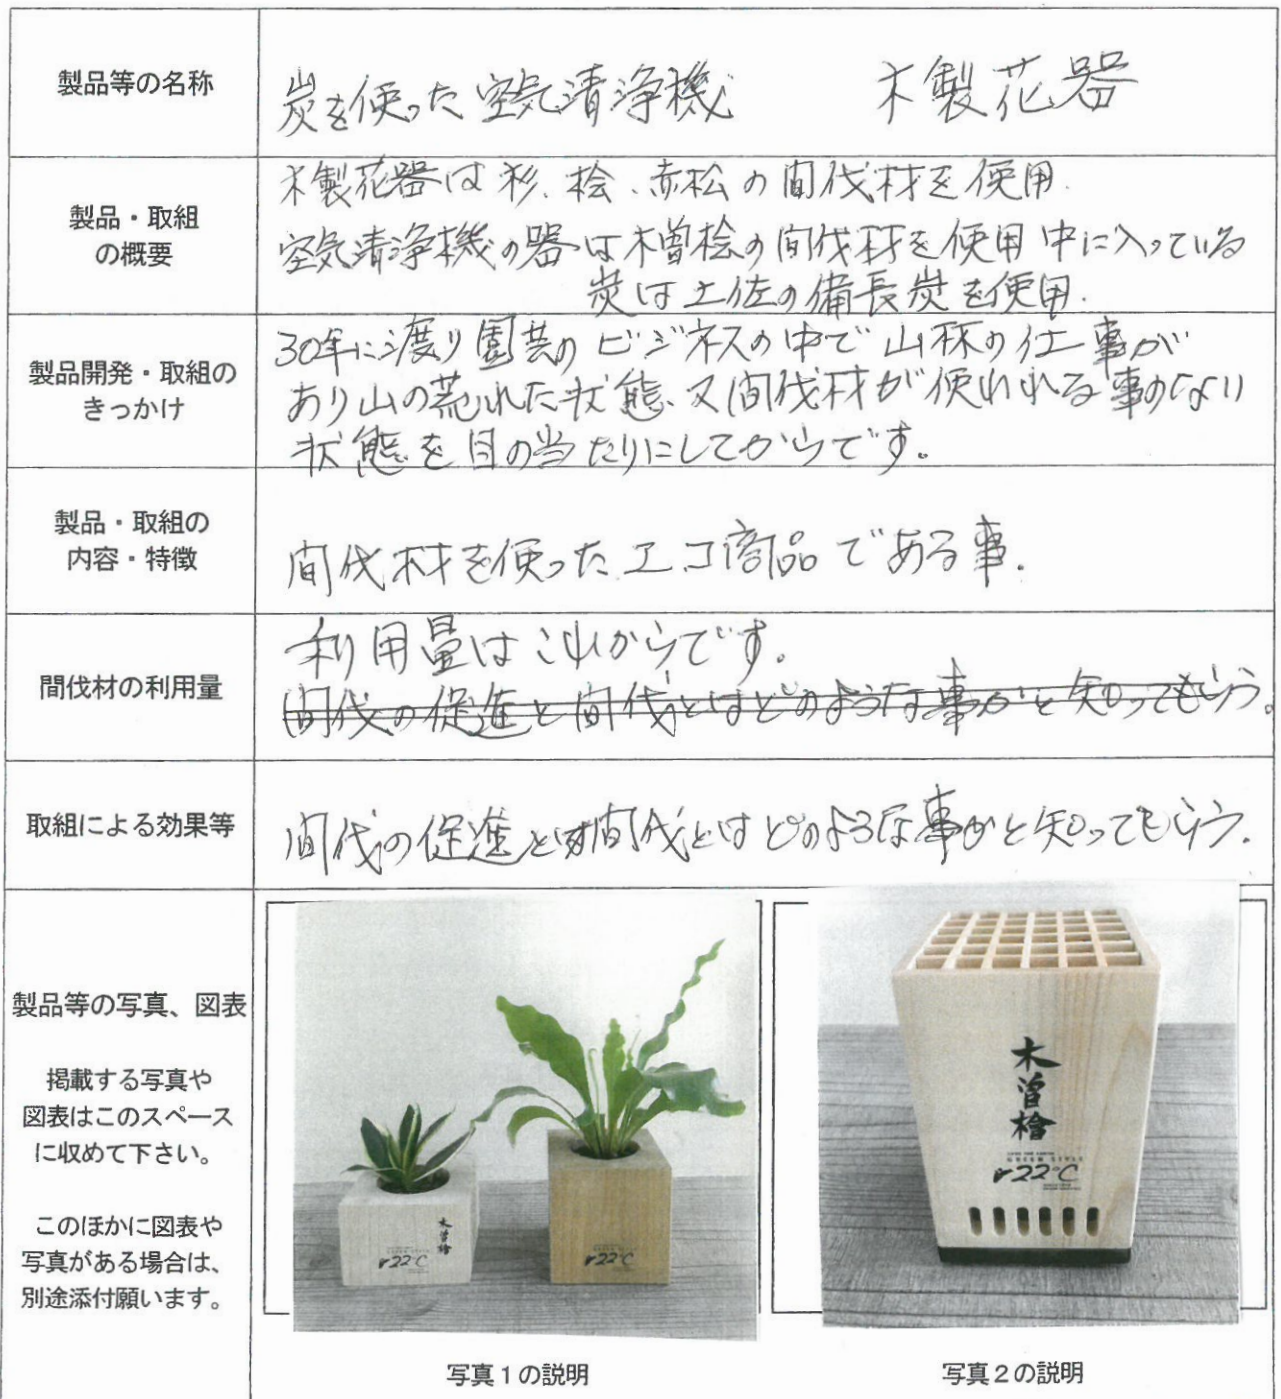 製品等の名称
炭を使った空気清浄機 木製花器
製品・取組
の概要
木製花器は杉、桧、赤松の間伐材を使用.
空気清浄機の器は木曽桧の間伐材を使用 中に入っている
炭は土佐の備長炭を使用.
製品開発・取組の
きっかけ
30年に渡り園芸のビジネスの中で山林の仕事が
あり山の荒れた状態、又間伐材が使われる事のない
状態を目の当たりにしてからです。
製品・取組の
内容・特徴
間伐材を使ったエコ商品である事.
間伐材の利用量
利用量はこれからです。
間伐の促進と間伐とはどのような事かと知ってもらう。
取組による効果等
間伐の促進と間伐とはどのような事かと知ってもらう.
製品等の写真、図表
掲載する写真や
図表はこのスペース
に収めて下さい。
このほかに図表や
写真がある場合は、
別途添付願います。
木曽檜
22℃
22℃
木曽檜
GREEN STYLE
22℃
写真1の説明
写真2の説明